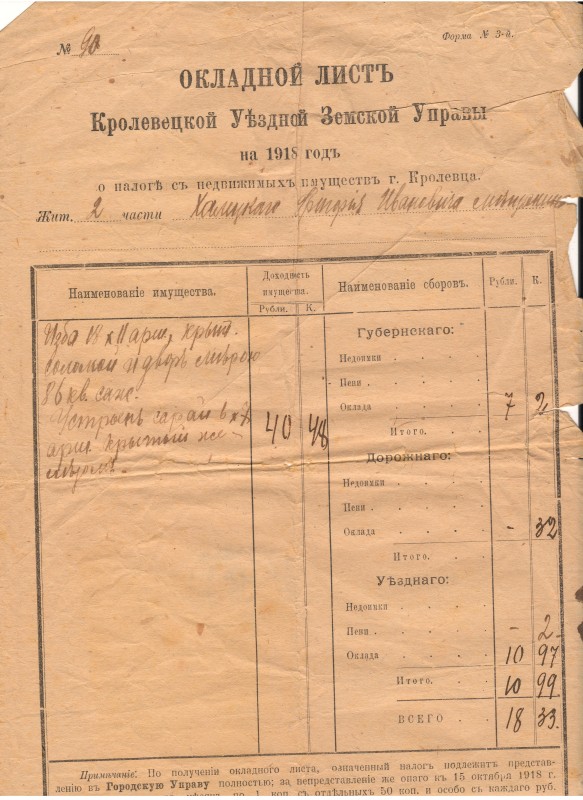 № 90
Форма № 3-й.
ОКЛАДНОЙ ЛИСТЪ
Кролевецкой Уѣздной Земской Управы
на 1918 годъ
о налогѣ съ недвижимыхъ имуществъ г. Кролевца.
Жит. 2 части Ивановича
Наименованіе имущества.
Доходность имущества.
Рубли. К.
Наименованіе сборовъ.
Рубли. К.
Изба 18 х 11 арш, крыт.
соломой и дворъ мѣрою
86 кв. саж.
сарай 6 х 7
арш. крытый же
40 48
Губернскаго:
Недоимки . . . .
Пени . . . . .
Оклада . . . . 7 2
Итого. . . .
Дорожнаго:
Недоимки . . . .
Пени . . . . .
Оклада . . . . - 32
Итого. . . .
Уѣзднаго:
Недоимки . . . .
Пени . . . . . - 2
Оклада . . . . 10 97
Итого. . . . 10 99.
ВСЕГО . . . 18 33.
Примѣчаніе: По полученіи окладного листа, означенный налогъ подлежитъ представ-
ленію въ Городскую Управу полностью; за непредставленіе же онаго къ 15 октября 1918 г.
по 1 коп. съ отдѣльныхъ 50 коп. и особо съ каждаго руб.